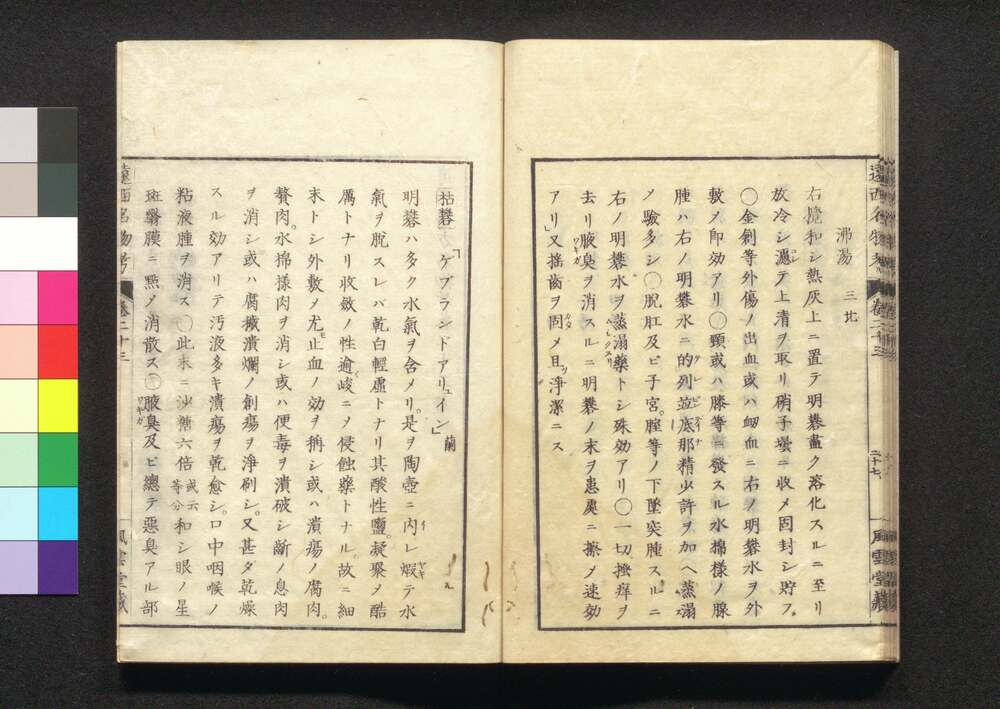 沸湯　三比
右攪和シ熱灰上ニ置テ明礬盡ク溶化スルニ至リ
放冷シ濾テ上清ヲ取リ硝子壜ニ收メ固封シ貯フ
〇金創等外傷ノ出血或ハ衂血ニ右ノ明礬水ヲ外
敷メ即効アリ〇頸或ハ膝等ニ發スル水棉樣ノ腺
腫ハ右ノ明礬水ニ的列並底那精少許ヲ加ヘ蒸溻
メ驗多シ〇脱肛及ヒ子宮。腟等ノ下墜突腫スルニ
右ノ明礬水ヲ蒸溻藥トシ殊効アリ〇一切搔痒ヲ
去リ腋臭ヲ消スルニ明礬ノ末ヲ患處ニ擦メ速効
アリ」又搖齒ヲ固メ且淨潔ニス
枯礬「ゲブランドアリュイン」蘭
明礬ハ多ク水氣ヲ含メリ。是ヲ陶壺ニ內レ煆テ水
氣ヲ脱スレバ乾白輕虛トナリ其酸性鹽。凝聚メ酷
厲トナリ收斂ノ性逾峻ニメ侵蝕藥トナル。故ニ細
末トシ外敷メ尤モ止血ノ効ヲ稱シ或ハ潰瘍ノ腐肉。
贅肉。水棉樣肉ヲ消シ或ハ便毒ヲ潰破シ齗ノ息肉
ヲ消シ或ハ腐擴潰爛ノ創瘍ヲ淨刷シ。又甚ダ乾燥
スル効アリテ汚液多キ潰瘍ヲ乾愈シ。口中咽喉ノ
粘液腫ヲ消ス〇此末ニ沙糖六倍或云等分和シ眼ノ星
斑翳膜ニ點メ消散ス〇腋臭及ビ總テ惡臭アル部
遠西名物考　卷二十三
二十七
風雲堂藏